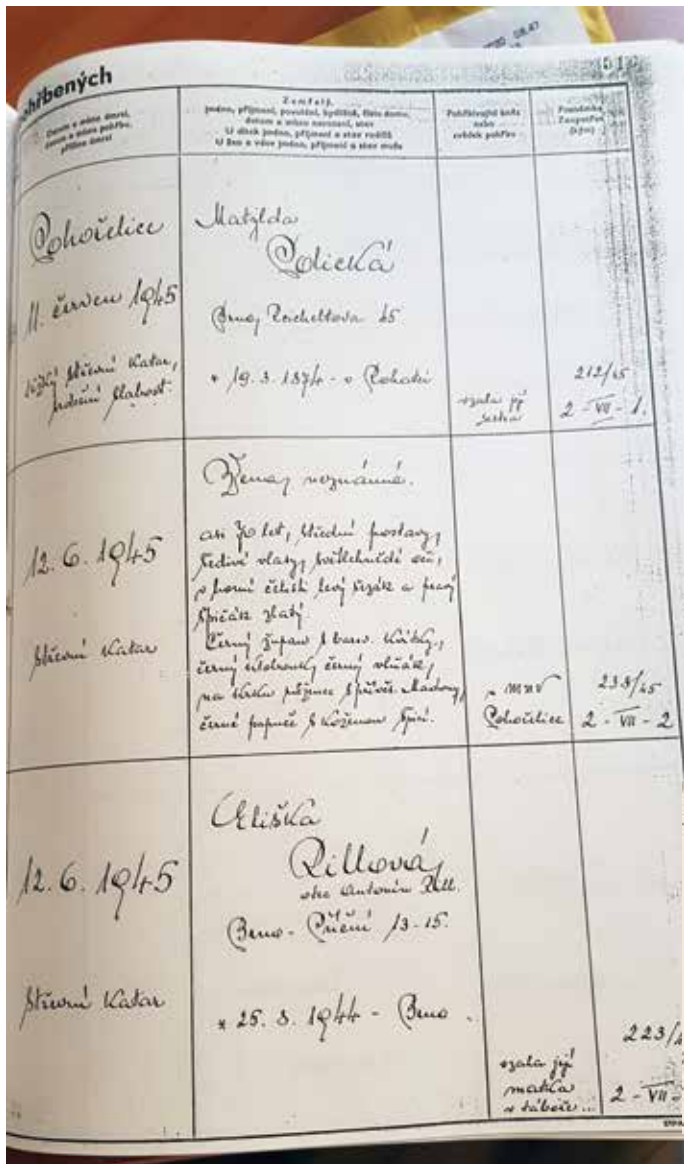 hřbených
51
Datum a místo úmrtí,
datum a místo pohřbu,
příčina úmrtí
Zemřelý,
jméno, příjmení, povolání, bydliště, číslo domu,
datum a místo narození, stav
U dítek jméno, příjmení a stav rodičů
U žen a vdov jméno, příjmení a stav muže
Pohřbívající kněz
nebo
svědek pohřbu
Poznámka
Pohořelice
11. červen 1945
střevní Katar,
slabost.
Matylda
Brno, 45
* 19. 3. 1874 - v
vzala jej
212/45
2 - VII - 1.
12. 6. 1945
střevní Katar
Žena, neznámá.
asi 70 let, střední postavy,
šedivé vlasy, světlehnědé oči,
v horní čelisti levý řezák a pravý
špičák zlatý.
Černý župan s barev. Kvítky,
černý černý vlňák,
na krku s přívěs. Madony,
černé papuče s Koženou špicí.
MNV
Pohořelice
233/45
2 - VII - 2
12. 6. 1945
střevní Katar
Eliška
Rillová,
otec Antonín Rill.
Brno - Příční 13-15.
* 25. 3. 1944 - Brno
vzala její
matka
v táboře...
223/4
2 - VII -